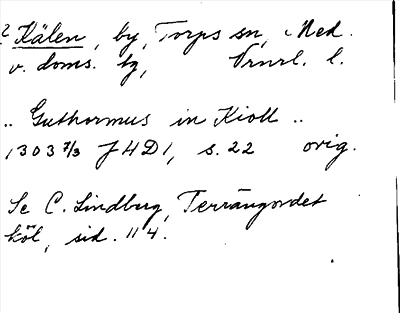 ? Kälen, by, Torps sn, Med.
v. doms. tg, Vrnrl. l.
.. Guthormus in Kioll ..
1303 7/3 JHD 1, s. 22 orig.
Se C. Lindberg, Terrängordet
köl, sid. 114.